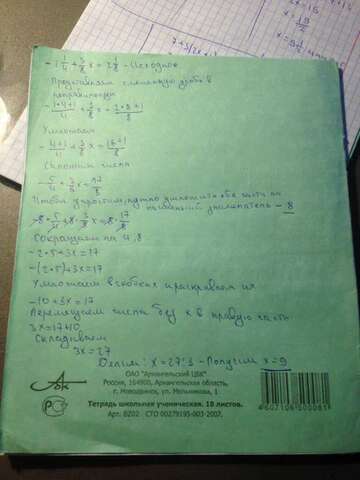 x=
7+3(2x+1
- 1 1/4 + 3/8 x = 2 1/8 - Исходное
Представляем смешанную дробь в
неправильную
- 1*4+1/4 + 3/8 x = 2*8+1/8
Умножаем
- 4+1/4 + 3/8 x = 16+1/8
Сложим числа
- 5/4 + 3/8 x = 17/8
нужно умножить обе части на
- 8
-8 · 5/4 + 8 · 3/8 x = 8 · 17/8
Сокращаем на 4,8
-2*5+3x=17
-(2*5)+3x=17
Умножаем в скобках и раскрываем их
-10+3x=17
Перемещаем числа без x в правую часть
3x=17+10
Складываем
3x=27
Делим: x=27:3 - Получим x=9
ОАО "Архангельский ЦБК"
Россия, 164900, Архангельская область,
г. Новодвинск, ул. Мельникова, 1
Тетрадь школьная ученическая. 18 листов.
Арт. 8Z02 СТО 00279195-003-2007.